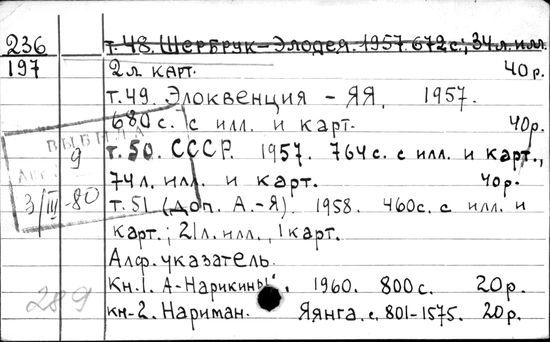 236 т.48. Шербрук-Элодея. 1957. 672 с.; 34 л. илл.
197 2 л карт. 40 р.
т.49. Элоквенция - ЯЯ. 1957.
680 с. с илл. и карт. 40 р.
ВЫБЫЛА
9 т.50. СССР. 1957. 764 с. с илл. и карт.,
74 л. илл. и карт. 40 р.
3/III-80 т.51 (доп. А.-Я). 1958. 460 с. с илл. и
карт.; 21 л. илл., 1 карт.
Алф. указатель.
Кн.1. А-Нарикины. 1960. 800 с. 20 р.
289 кн-2. Нариман. Яянга. с. 801-1575. 20 р.